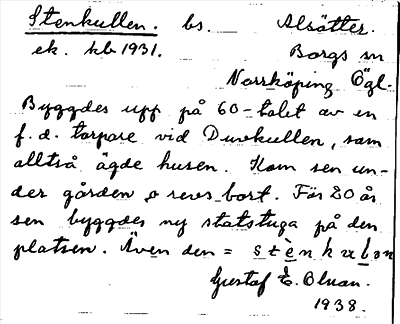 Stenkullen. bs. Alsätter.
ek. kb 1931. Borgs sn
Norrköping Ögl.
Byggdes upp på 60-talet av en
f. d. torpare vid Durkullen, som
alltså ägde husen. Kom sen un-
der gården o revs bort. För 20 år
sen byggdes ny statstuga på den
platsen. Även den =
Gustaf E. Olsson.
1938.